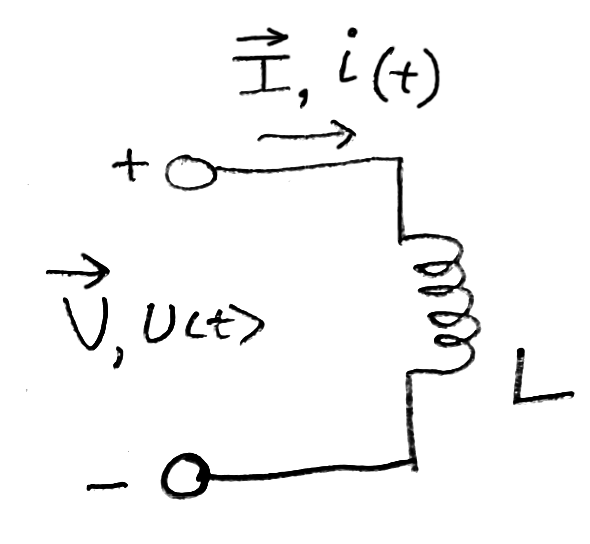 I⃗, i(t)
+
V⃗, υ(t)
L
−